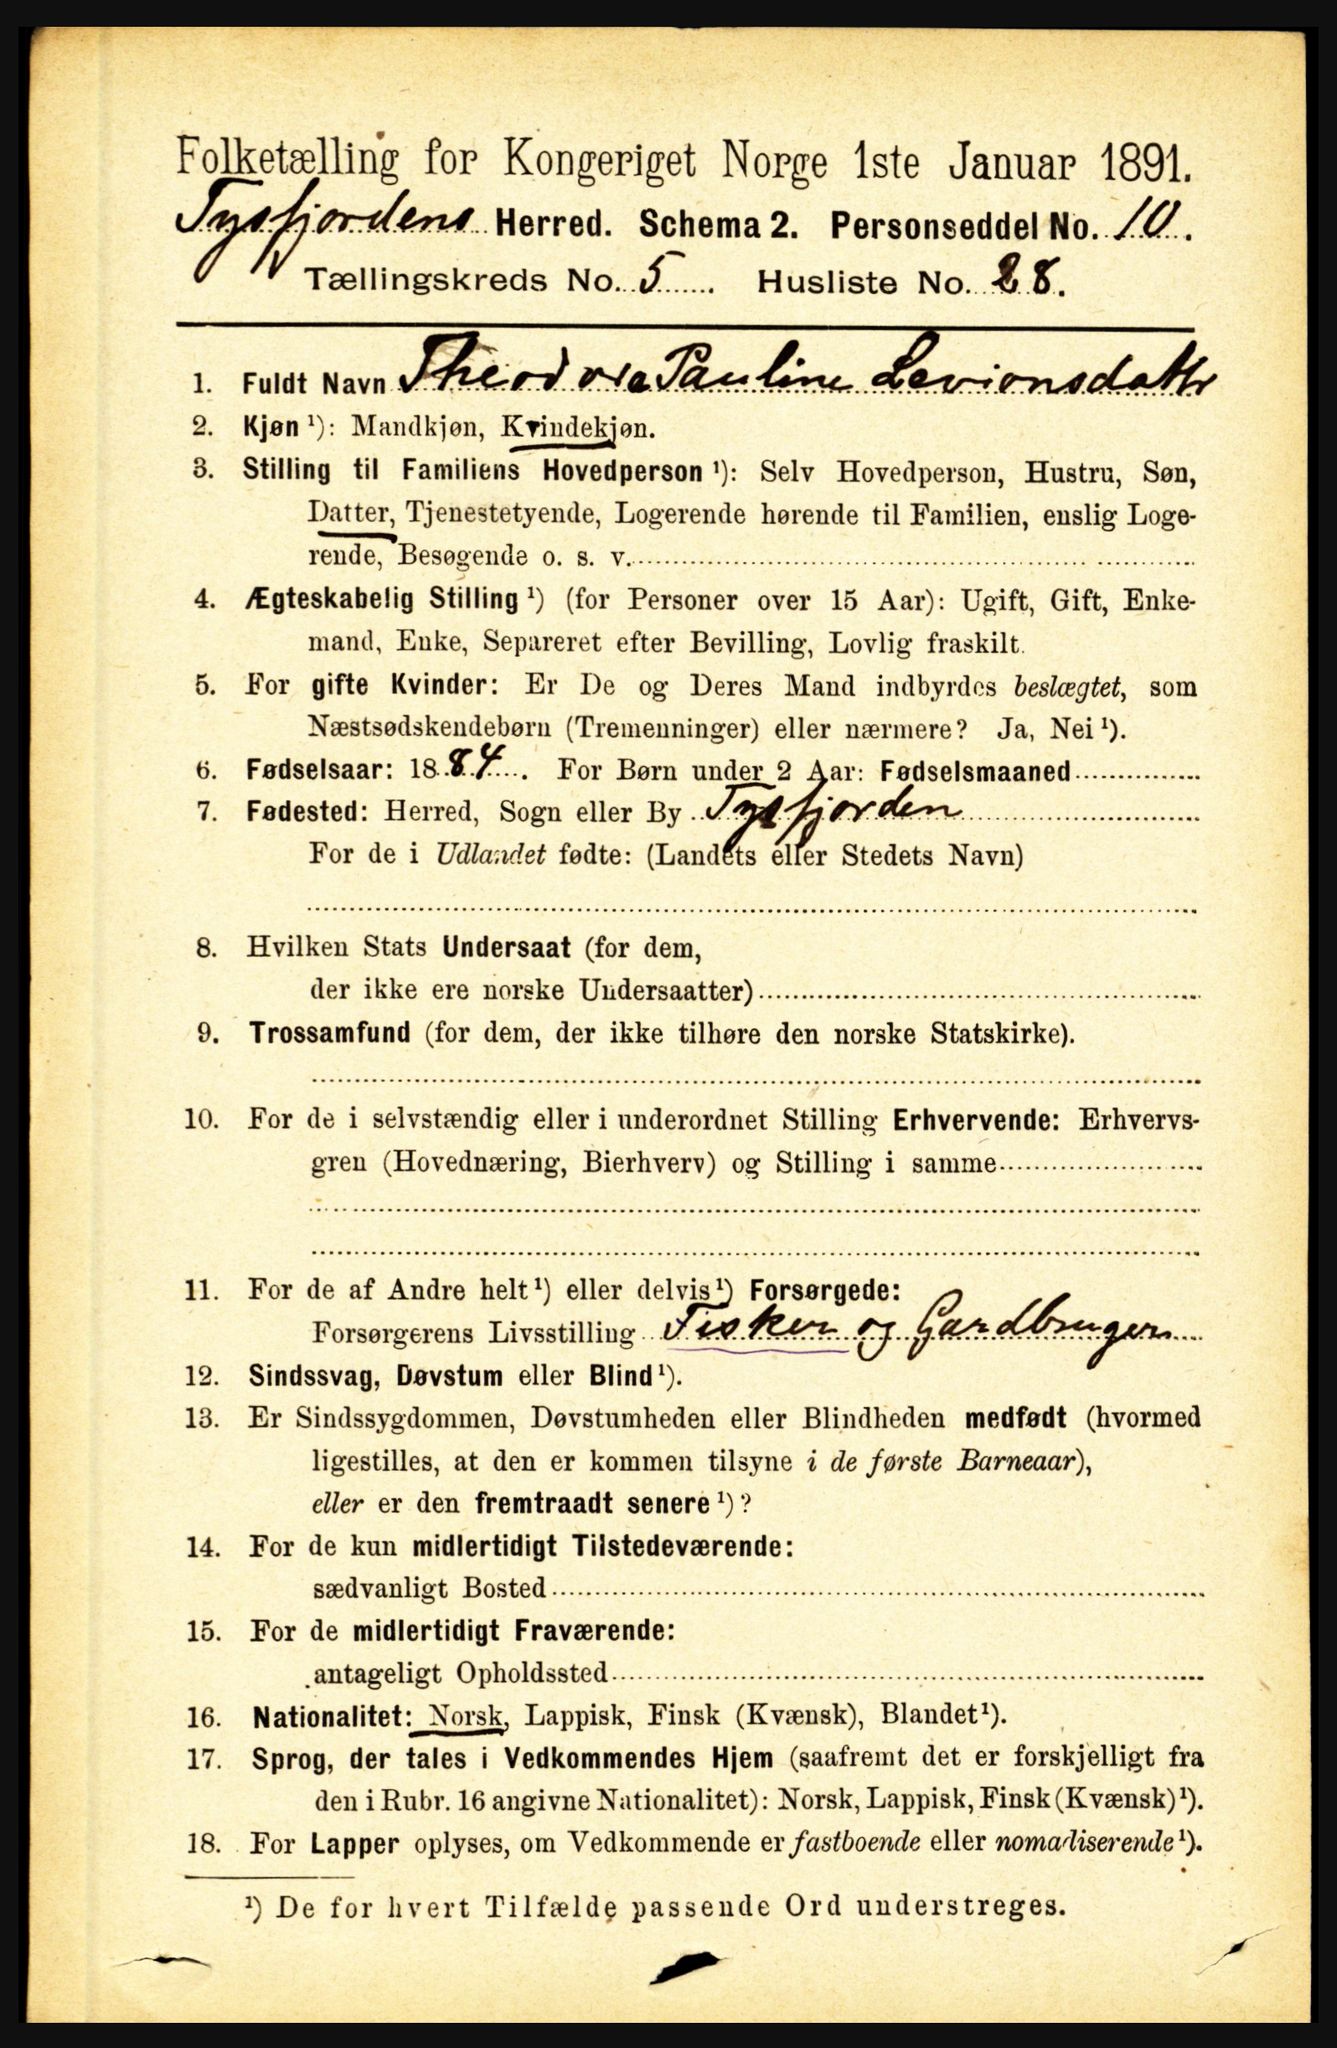 Folketælling for Kongeriget Norge 1ste Januar 1891.
Tysfjordens Herred. Schema 2. Personseddel No. 10.
Tællingskreds No. 5. Husliste No. 28.
1. Fuldt Navn Theodora Pauline Levionsdattr
2. Kjøn ¹): Mandkjøn, Kvindekjøn.
3. Stilling til Familiens Hovedperson ¹): Selv Hovedperson, Hustru, Søn,
Datter, Tjenestetyende, Logerende hørende til Familien, enslig Loge-
rende, Besøgende o. s. v.
4. Ægteskabelig Stilling ¹) (for Personer over 15 Aar): Ugift, Gift, Enke-
mand, Enke, Separeret efter Bevilling, Lovlig fraskilt.
5. For gifte Kvinder: Er De og Deres Mand indbyrdes beslægtet, som
Næstsødskendebørn (Tremenninger) eller nærmere? Ja, Nei ¹).
6. Fødselsaar: 1884. For Børn under 2 Aar: Fødselsmaaned
7. Fødested: Herred, Sogn eller By Tysfjorden
For de i Udlandet fødte: (Landets eller Stedets Navn)
8. Hvilken Stats Undersaat (for dem,
der ikke ere norske Undersaatter)
9. Trossamfund (for dem, der ikke tilhøre den norske Statskirke).
10. For de i selvstændig eller i underordnet Stilling Erhvervende: Erhvervs-
gren (Hovednæring, Bierhverv) og Stilling i samme
11. For de af Andre helt ¹) eller delvis ¹) Forsørgede:
Forsørgerens Livsstilling Fisker og Gardbruger
12. Sindssvag, Døvstum eller Blind ¹).
13. Er Sindssygdommen, Døvstumheden eller Blindheden medfødt (hvormed
ligestilles, at den er kommen tilsyne i de første Barneaar),
eller er den fremtraadt senere ¹)?
14. For de kun midlertidigt Tilstedeværende:
sædvanligt Bosted
15. For de midlertidigt Fraværende:
antageligt Opholdssted
16. Nationalitet: Norsk, Lappisk, Finsk (Kvænsk), Blandet ¹).
17. Sprog, der tales i Vedkommendes Hjem (saafremt det er forskjelligt fra
den i Rubr. 16 angivne Nationalitet): Norsk, Lappisk, Finsk (Kvænsk) ¹).
18. For Lapper oplyses, om Vedkommende er fastboende eller nomadiserende ¹).
¹) De for hvert Tilfælde passende Ord understreges.